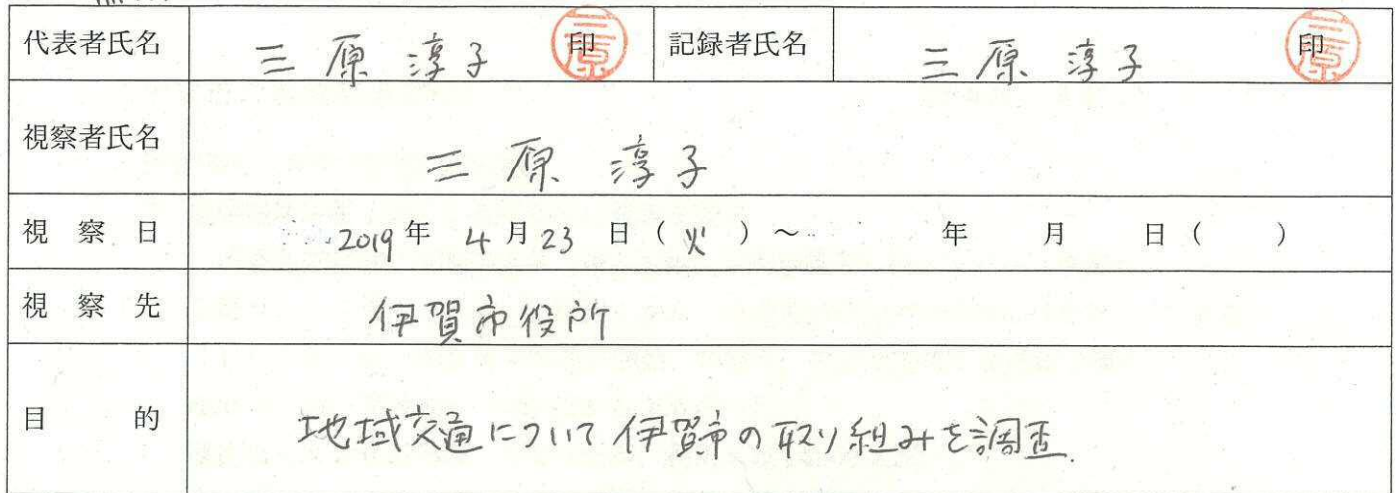 代表者氏名 三原 淳子 印 三原 記録者氏名 三原 淳子 印 三原
視察者氏名 三原 淳子
視察日 2019年 4月23日(火)～ 年 月 日( )
視察先 伊賀市役所
目的 地域交通について伊賀市の取り組みを調査.